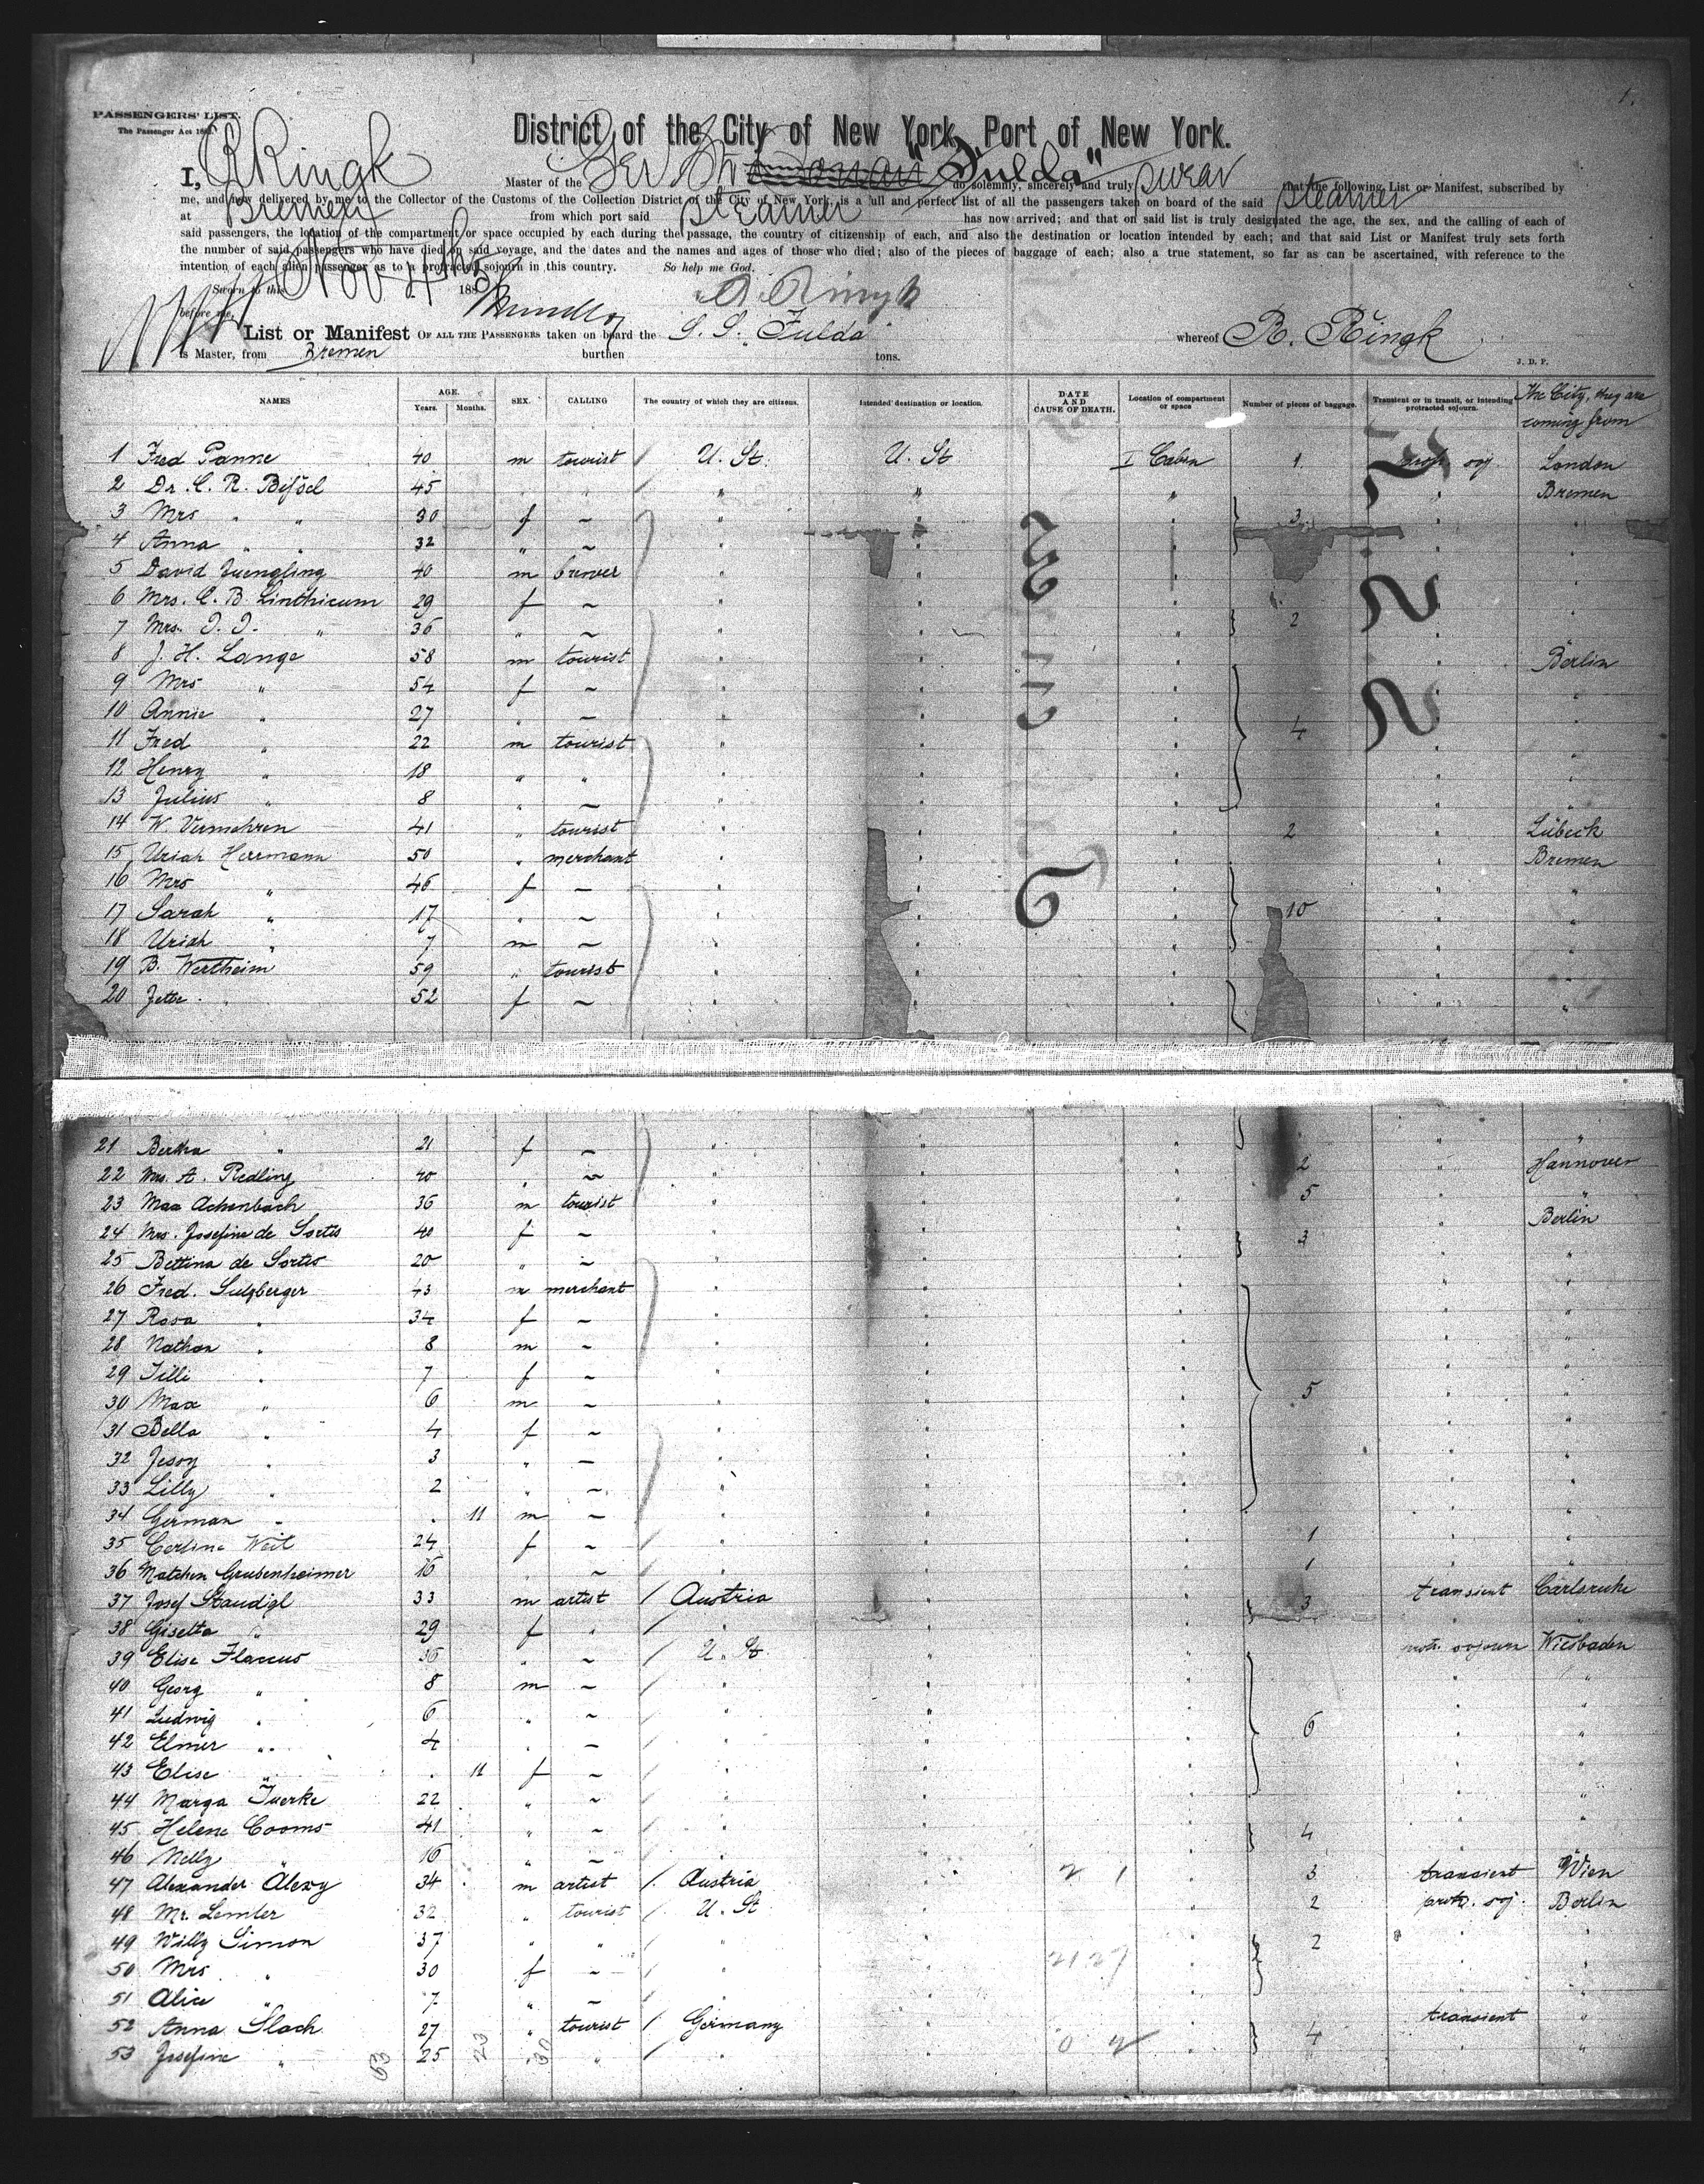 1.
PASSENGERS' LIST.
The Passenger Act 188
District of the City of New York, Port of New York.
I, R Ringk Master of the Ger Str "Fulda" do solemnly, sincerely and truly swear that the following List or Manifest, subscribed by
me, and now delivered by me to the Collector of the Customs of the Collection District of the City of New York, is a full and perfect list of all the passengers taken on board of the said Steamer
at Bremen from which port said Steamer has now arrived; and that on said list is truly designated the age, the sex, and the calling of each of
said passengers, the location of the compartment or space occupied by each during the passage, the country of citizenship of each, and also the destination or location intended by each; and that said List or Manifest truly sets forth
the number of said passengers who have died on said voyage, and the dates and the names and ages of those who died; also of the pieces of baggage of each; also a true statement, so far as can be ascertained, with reference to the
intention of each alien passenger as to a protracted sojourn in this country. So help me God.
Sworn to this Nov 4th 188 R. Ringk
before me,
List or Manifest OF ALL THE PASSENGERS taken on board the S. S. "Fulda" whereof R. Ringk
is Master, from Bremen burthen tons. J. D. P.
NAMES AGE. Years. Months. SEX. CALLING The country of which they are citizens. Intended destination or location. DATE AND CAUSE OF DEATH. Location of compartment or space Number of pieces of baggage. Transient or in transit, or intending protracted sojourn. The City, they are coming from
1 Fred Panne 40 m tourist U. St. U. St I Cabin 1 protr. soj. London
2 Dr. C. R. 45 " " " " Bremen
3 Mrs " " 30 f ~ " " " 3 " "
4 Anna " " 32 " ~ " " " " "
5 David Juengling 40 m brewer " " " " "
6 Mrs. C. B. Linthicum 29 f ~ " " " " "
7 Mrs. J. J. " 36 " ~ " " " 2 " "
8 J. H. Lange 58 m tourist " " " " Berlin
9 Mrs " 54 f ~ " " " " "
10 Annie " 27 " ~ " " " 4 " "
11 Fred " 22 m tourist " " " " "
12 Henry " 18 " " " " " " "
13 Julius " 8 " ~ " " " " "
14 W. Vermehren 41 " tourist " " " 2 " Lübeck
15 Uriah Herrmann 50 " merchant " " " " Bremen
16 Mrs " 46 f ~ " " " " "
17 Sarah " 17 " ~ " " " 10 " "
18 Uriah " 7 m ~ " " " " "
19 B. Wertheim 59 " tourist " " " " "
20 Jette " 52 f ~ " " " " "
21 Bertha " 21 f ~ " " " " "
22 Mrs. A. Redling 40 " ~ " " " 2 " Hannover
23 Max Achenbach 36 m tourist " " " 5 " "
24 Mrs. Josefine de Sortis 40 f ~ " " " 3 " Berlin
25 Bettina de Sortis 20 " ~ " " " " "
26 Fred. Sulzberger 43 m merchant " " " " "
27 Rosa " 34 f ~ " " " " "
28 Nathan " 8 m ~ " " " " "
29 Tilli " 7 f ~ " " " " "
30 Max " 6 m ~ " " " 5 " "
31 Bella " 4 f ~ " " " " "
32 Jessy " 3 " ~ " " " " "
33 Lilly " 2 " ~ " " " " "
34 German " . 11 m ~ " " " " "
35 Cerline Weil 24 f ~ " " " 1 " "
36 Matchen Grubenheimer 16 " ~ " " " 1 " "
37 Josef Staudigl 33 m artist Austria " " 3 transient Carlsruhe
38 Gisella " 29 f " " " " " "
39 Elise Flaccus 36 " ~ U. St " " protr. sojourn Wiesbaden
40 Georg " 8 m ~ " " " " "
41 Ludwig " 6 " ~ " " " " "
42 Elmer " 4 " ~ " " " 6 " "
43 Elise " . 11 f ~ " " " " "
44 Marga Tuerke 22 " ~ " " " " "
45 Helene Cooms 41 " ~ " " " 4 " "
46 Nelly " 16 " ~ " " " " "
47 Alexander Alexy 34 m artist Austria " 2 1 " 3 transient Wien
48 Mr. Lemler 32 " tourist U. St " " 2 protr. soj. Berlin
49 Willy Simon 37 " " " " " 2 " "
50 Mrs " 30 f ~ " " " " "
51 Alice " 7 " ~ " " " " "
52 Anna Slach 27 " tourist Germany " " 4 transient "
53 Josefine " 25 " " " " " " "
53 23 30